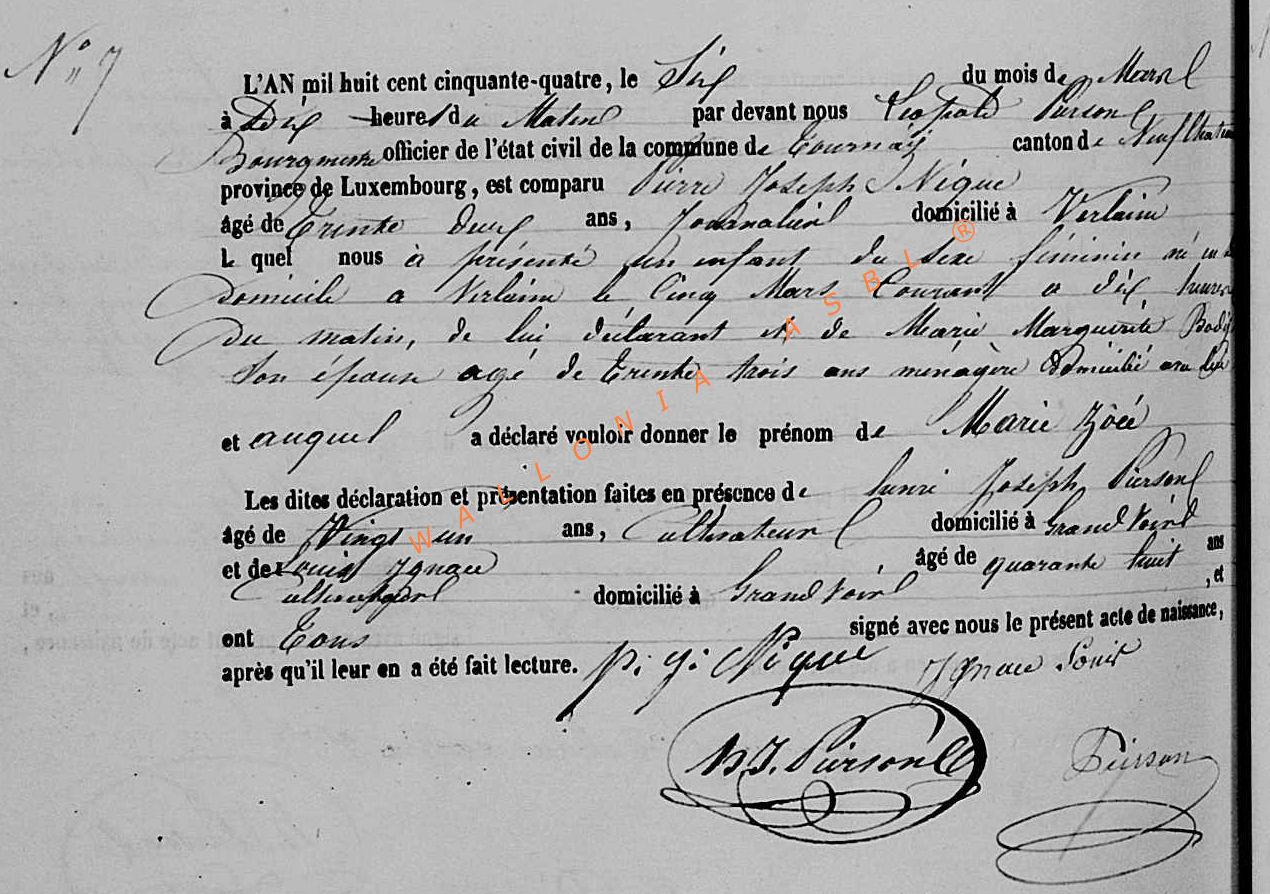 N° 7
L'AN mil huit cent cinquante-quatre, le Six du mois de Mars
à Dix heures du Matin par devant nous Léopold Pierson
Bourgmestre officier de l'état civil de la commune de Tournay canton de Neufchateau
province de Luxembourg, est comparu Pierre Joseph Nique
âgé de Trente deux ans, Journalier domicilié à Verlaine
Lequel nous à présenté un enfant du sexe féminin né en
Domicile a Verlaine le Cinq Mars Courant a dix heures
Du matin, de lui déclarant et de Marie Marguerite
Son épouse agé de Trente trois ans ménagère Domicilié
et auquel a déclaré vouloir donner le prénom de Marie Zoée
Les dites déclaration et présentation faites en présence de henri Joseph Pierson
âgé de Vingt un ans, Cultivateur domicilié à Grand Voir
et de Louis Ignace âgé de quarante huit ans
Cultivateur domicilié à Grand Voir , et
ont Tous signé avec nous le présent acte de naissance,
après qu'il leur en a été fait lecture. p. j: Nique Ignace Louis
H J. Pierson Pierson
WALLONIA ASBL ®